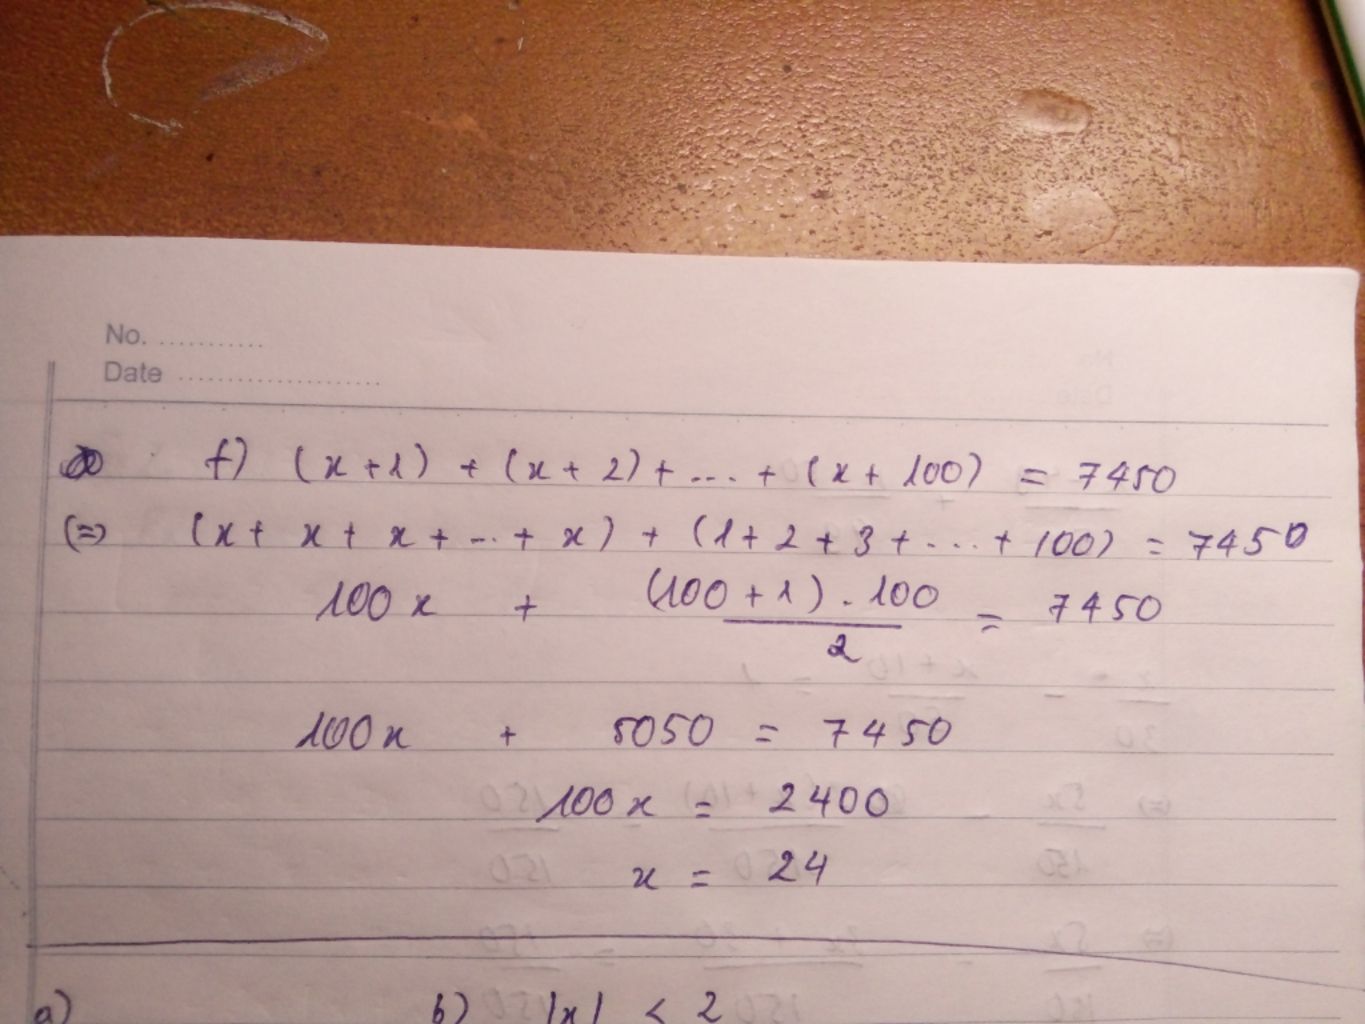 No. ...........
Date ......................
f) (x+1) + (x+2) + ... + (x+100) = 7450
(=) (x + x + x + ... + x) + (1+2+3+...+100) = 7450
100x + (100+1).100 / 2 = 7450
100x + 5050 = 7450
100x = 2400
x = 24
a) b) |x| < 2